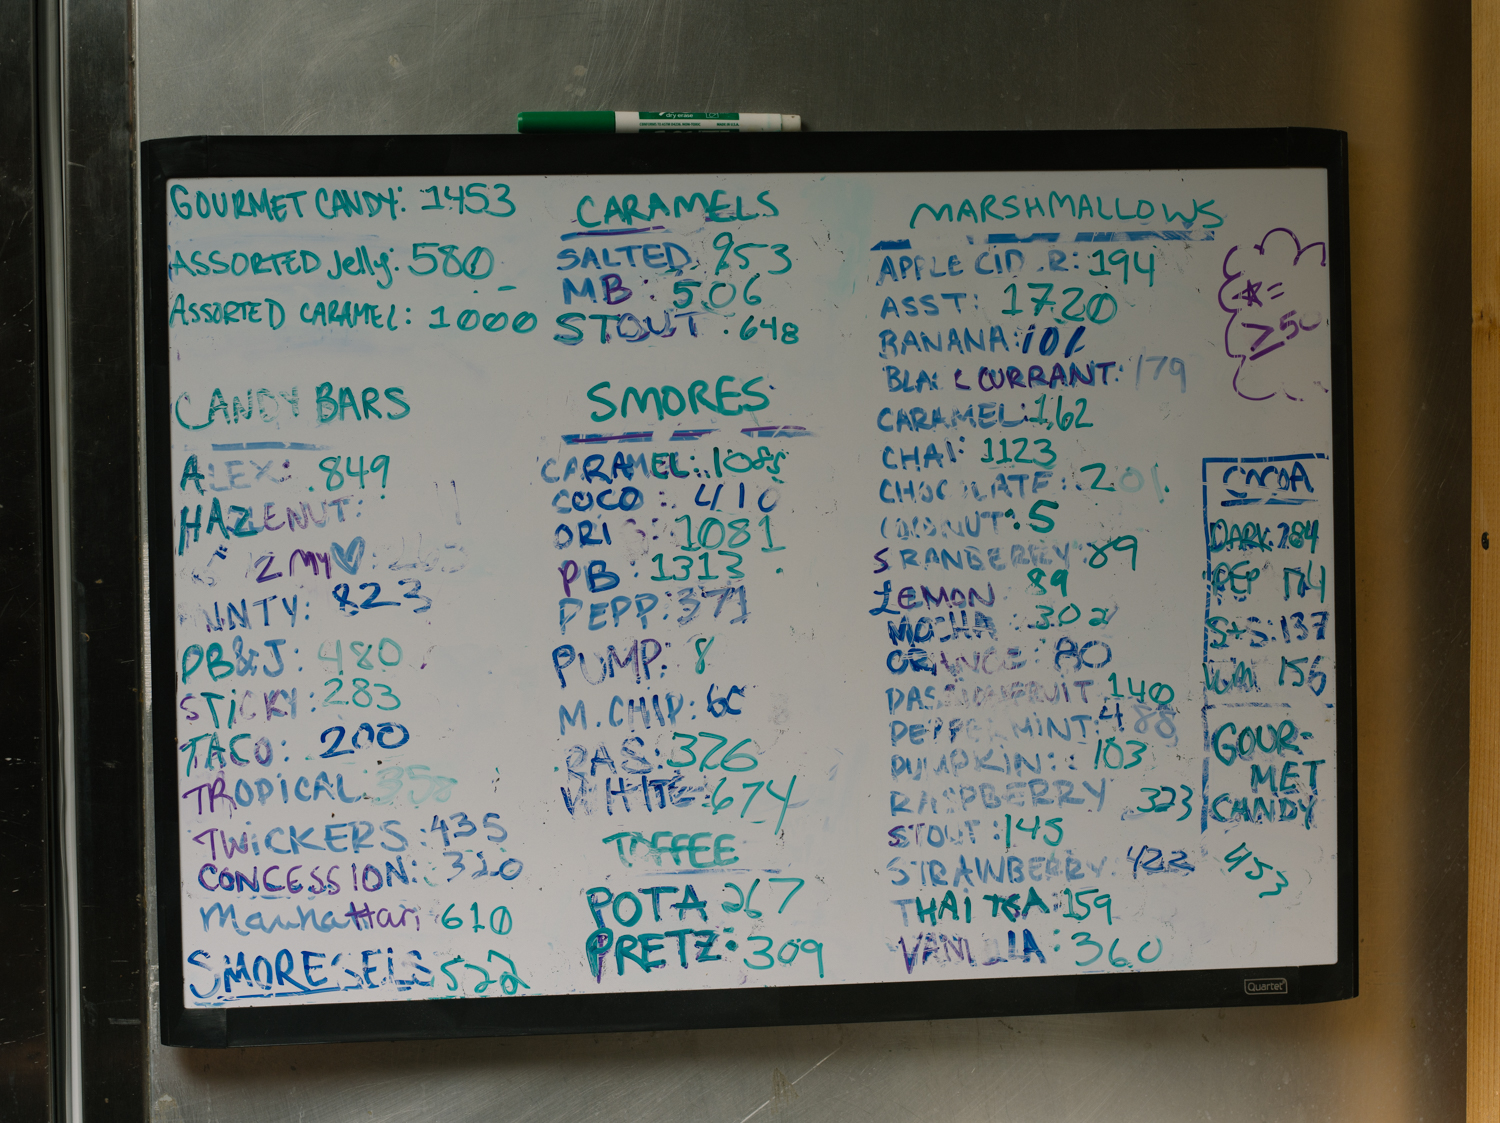 dry erase
GOURMET CANDY: 1453
ASSORTED Jelly: 580
ASSORTED CARAMEL: 1000
CANDY BARS
ALEX: 849
HAZLENUT:
2 MY
823
PB&J: 480
STICKY: 283
TACO: 200
TROPICAL: 358
TWICKERS: 435
CONCESSION: 320
Manhattan 610
SMORESELS 522
CARAMELS
SALTED 953
MB: 506
STOUT: 648
SMORES
CARAMEL: 1085
COCO: 410
ORIG: 1081
PB: 1313
PEPP: 371
PUMP: 8
M.CHIP:
RAS: 326
WHITE: 674
TOFFEE
POTA 267
PRETZ: 309
MARSHMALLOWS
APPLE CIDER: 194
ASST: 1720
BANANA: 101
BLACK CURRANT: 179
CARAMEL: 162
CHAI: 1123
CHOCOLATE: 201
COCONUT: 5
CRANBERRY 89
LEMON 89
MOCHA 302
ORANGE: 80
PASSIONFRUIT 140
PEPPERMINT: 488
PUMPKIN: 103
RASPBERRY 323
STOUT: 145
STRAWBERRY 422
THAI TEA: 159
VANILLA: 360
* =
≥ 50
COCOA
DARK: 284
PEP 174
S+S: 137
156
GOUR-
MET
CANDY
453
Quartet